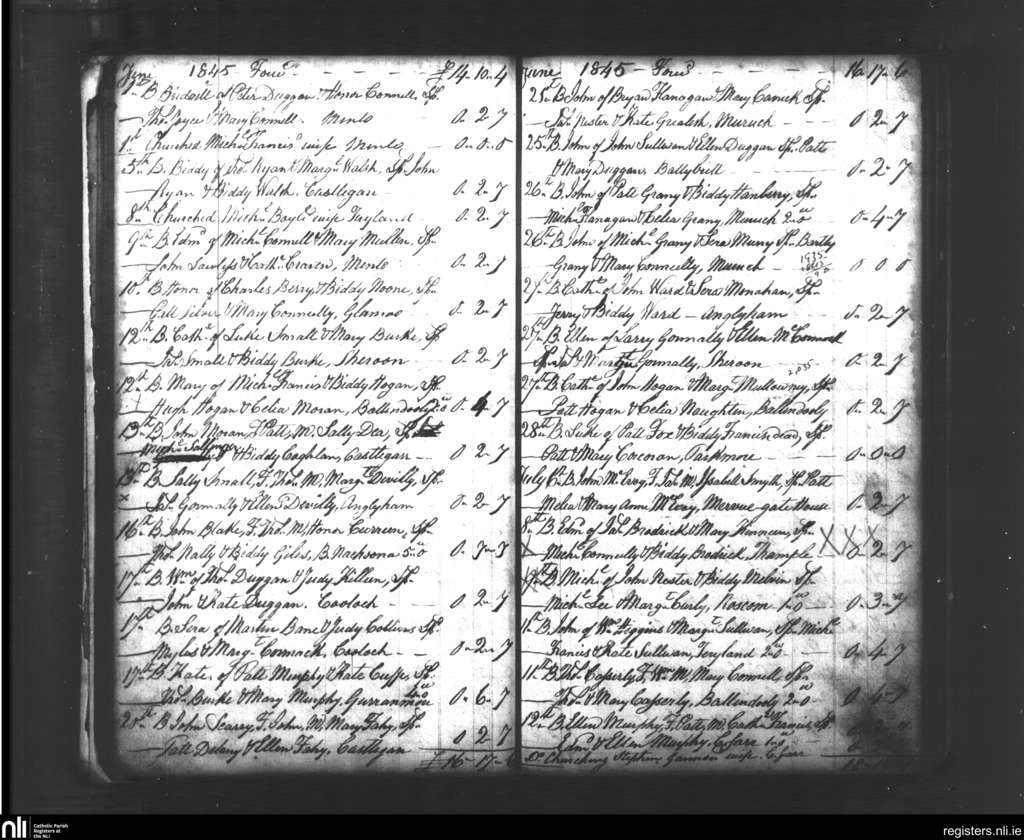 June 1845 Fowd £14-10-4
1st B Bridgill of Peter Duggan & Honor Connell, Sp.
Thos. Joyce & Mary Connell - Menlo 0. 2. 7
1st Churched Michl. Francis' wife Menlo 0-0-0
5th B. Biddy of Thos. Ryan & Margt. Walsh, Sp. John
Ryan & Biddy Walsh. Castlegar 0. 2. 7
8th Churched Michl. wife 0. 2. 7
9th B. Edmd. of Michl. Connell & Mary Sp.
John & Cathe. Craven, Menlo 0. 2. 7
10th B. Honor of Charles Berry & Biddy Noone, Sp.
& Mary Connelly, 0. 2. 7
12th B. Cathe. of Luke Small & Mary Burke, Sp
Jas. Small & Biddy Burke, Sheroon 0. 2. 7
12th B. Mary of Michl. Francis & Biddy Hogan, Sp.
Hugh Hogan & Celia Moran, Ballindooly 0. 4. 7
13th B. John Moran, F. Patt, M. Sally Dea, Sp.
& Biddy Coghlan, Castlegar 0. 2. 7
13th B. Sally Small, F. Thos. M. Margt. Devilly, Sp.
x Jas. Gormally & Ellen Devilly, Anglyham 0. 2. 7
16th B. John Blake, F. M. Honor Curreen, Sp
Thos. Nally & Biddy Giles, 5-0 0. 7-7
17th B. Wm. of Thos. Duggan & Judy Killeen, Sp.
John & Kate Duggan. Cooloch 0. 2. 7
17th B. Sera of Martin Bane & Judy Collins Sp.
Myles & Margt. Cormack, Cooloch 0. 2. 7
17th B. Kate, of Patt Murphy & Kate Cuffe, Sp.
Thos. Burke & Mary Murphy, 0. 6. 7
20th B. John Scarry, F. John, M. Mary Fahy, Sp.
Patt Delany & Ellen Fahy, Castlegar 0 2 7
£ 16-17-6
June 1845 - Fowd 16-17-6
25th B. John of Bryan Flanagan & Mary Sp.
Jas. & Kate Grealish, Muruch 0. 2. 7
25th B. John of John Sullivan & Ellen Duggan Sp. Patt
& Mary Duggan 0. 2. 7
26th B. John of Patt Grany & Biddy Hanberry, Sp.
Michl. Flanagan & Celia Grany, Muruch 2-0 0. 4. 7
26th B. John of Michl. Grany & Sera Sp. Bartly
Grany & Mary Connelly, Muruch 0 0 0
27th B. Cathe. of John Ward & Sera Monahan, Sp.
Jerry & Biddy Ward - Anglyham 0. 2. 7
27th B. Ellen of Larry Gormally & Ellen McCormack
Gormally, Sheroon 0. 2. 7
27th B. Cathe. of John Hogan & Margt. Mullowney, Sp.
Patt Hogan & Celia Naughten, Ballindooly 0. 2. 7
28th B. Luke of Patt Fox & Biddy Francis dead, Sp.
Patt & Mary Corcoran, Parkmore 0. 0. 0
July B. John McEvoy, F. Jas. M. Isabell Smyth, Sp. Patt
Melia & Mary Anne McEvoy, Mervue gate House 0. 2. 7
8th B. Edmd. of Jas. Brodrick & Mary Sp.
Michl. Connelly & Biddy Brodrick, XXX 0. 2. 7
B. Michl. of John Nester & Biddy Melvin Sp.
Michl. Lee & Margt. Curly, Roscom 1-0 0. 3. 7
B. John of Wm. Higgins & Margt. Sullivan, Sp. Michl.
Francis & Kate Sullivan, 2-0 0. 4. 7
11th B. Thos. Casserly, F. Wm. M. Mary Connell Sp.
Thos. & Mary Casserly, Ballindooly 2-0 0. 4. 7
12th B. Ellen Murphy, F. Patt, M. Cathe. Francis, Sp
Edmd. & Ellen Murphy.
Do. Churching Stephen Gannon wife.
nli Catholic Parish Registers at the NLI
registers.nli.ie